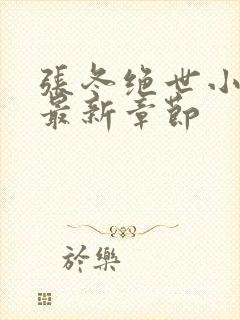 張冬绝世小
最新章節
於樂